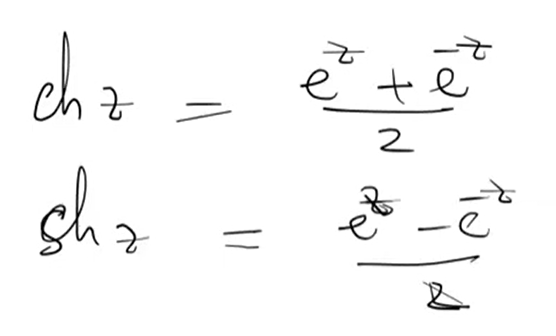 ch z = (e^z + e^-z) / 2
sh z = (e^z - e^-z) / 2